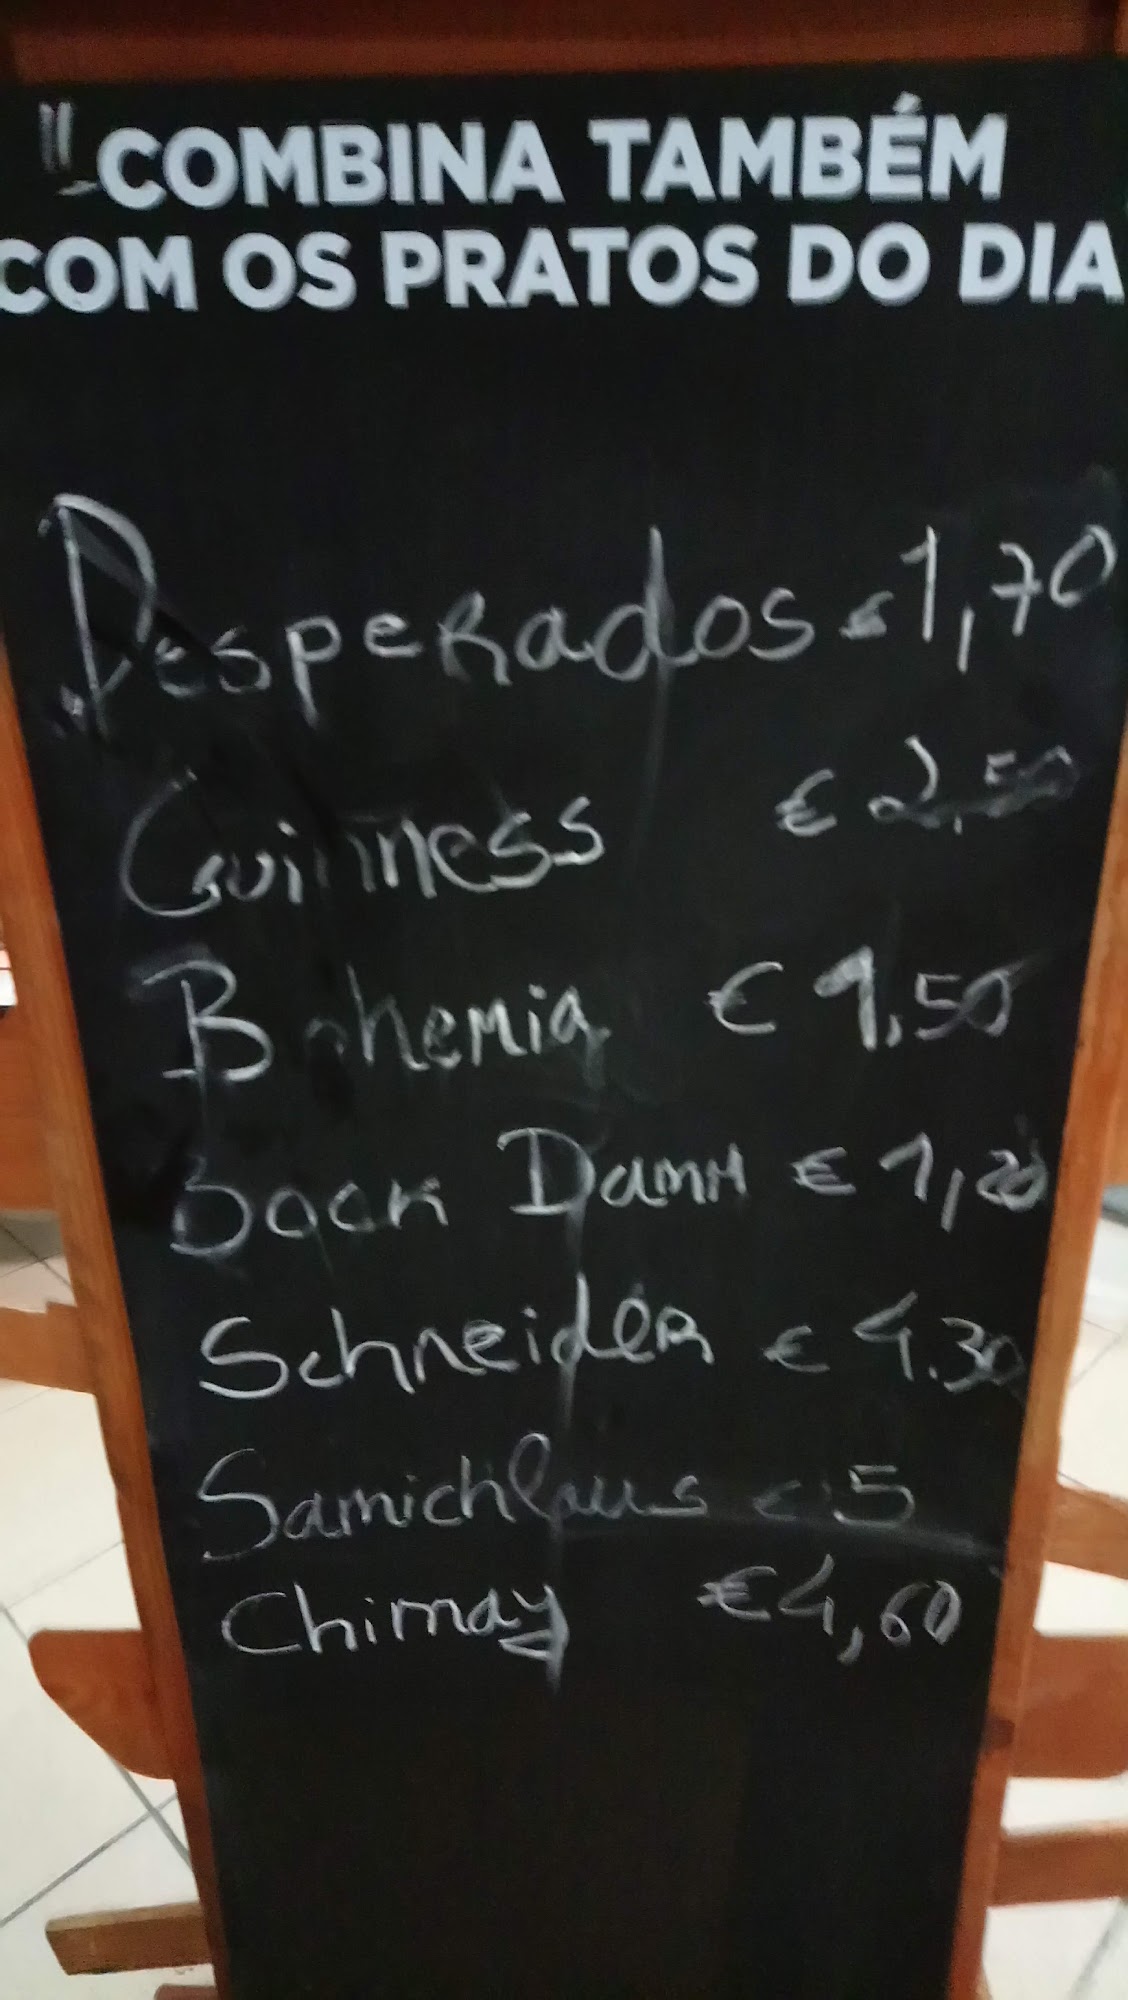 COMBINA TAMBÉM
COM OS PRATOS DO DIA
Desperados € 1,70
Guinness € 2,50
Bohemia € 1,50
Bock Damm € 1,20
Schneider € 4.30
Samichlaus € 5
Chimay € 4,60